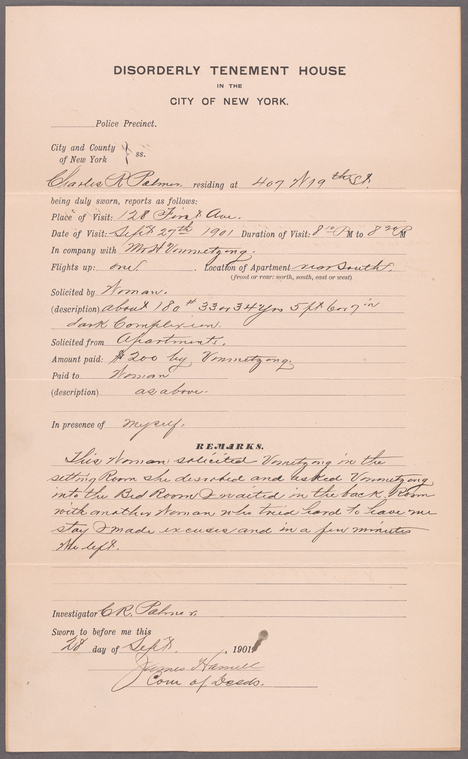 DISORDERLY TENEMENT HOUSE
IN THE
CITY OF NEW YORK.
Police Precinct.
City and County
of New York ss.
Charles R Palmer residing at 407 W 19th St.
being duly sworn, reports as follows:
Place of Visit: 128 First Ave.
Date of Visit: Sept 27th 1901 Duration of Visit: 8 P M to 8 P M
In company with Mr H Vonmetzong.
Flights up: one. Location of Apartment rear South.
(front or rear: north, south, east or west)
Solicited by Woman.
(description) about 180# 33 or 34 yrs 5 ft 6 or 7 in
dark Complexion.
Solicited from Apartments.
Amount paid: $2.00 by Vonmetzong.
Paid to Woman
(description) as above.
In presence of myself.
REMARKS.
This Woman solicited Vonmetzong in the
sitting Room she disrobed and asked Vonmetzong
into the Bed Room I waited in the back Room
with another Woman who tried hard to have me
stay I made excuses and in a few minutes
We left.
Investigator C.R. Palmer.
Sworn to before me this
28 day of Sept. , 1901
James Hamill
Com of Deeds.